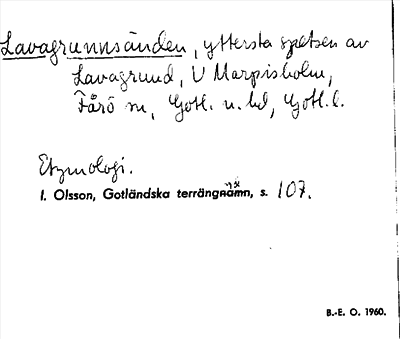 Lavagrunnsänden, yttersta spetsen av
Lavagrund, V Marpisholm,
Fårö sn, Gotl. n. hd, Gotl. l.
Etymologi.
I. Olsson, Gotländska terrängnamn, s. 107.
B.-E. O. 1960.